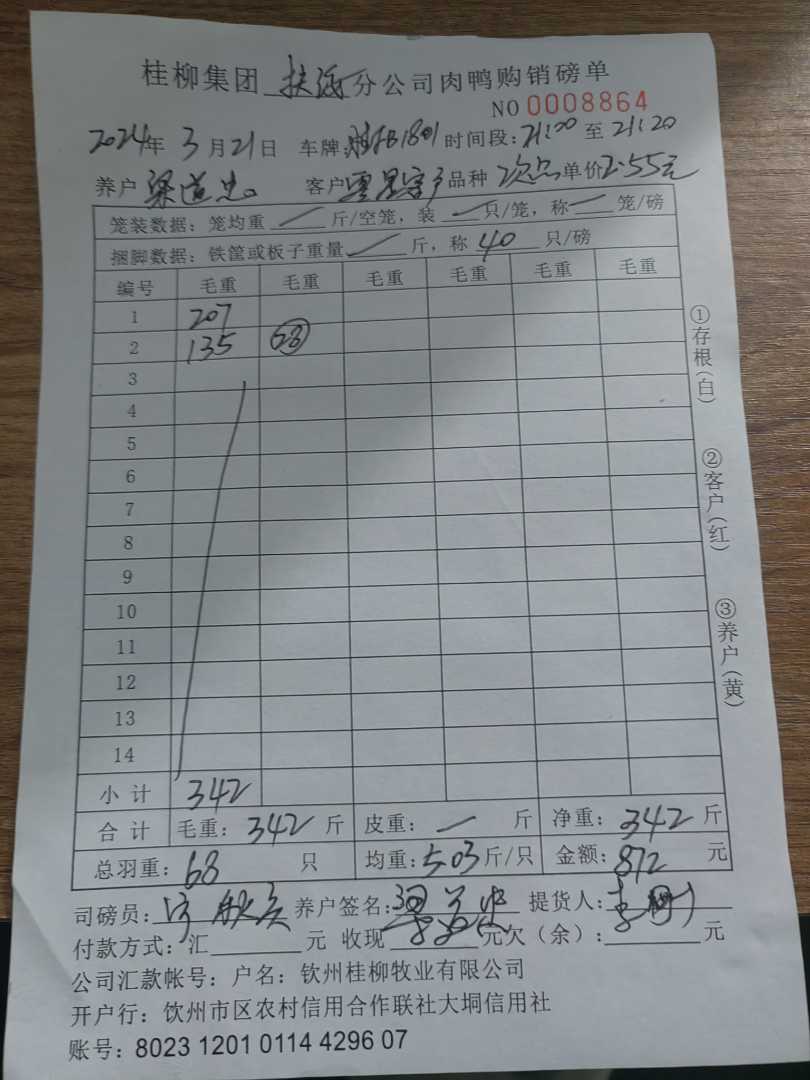 桂柳集团 扶海 分公司肉鸭购销磅单
NO 0008864
2024年 3月21日 车牌: B1801 时间段:21:00 至 21:20
养户 梁道忠 客户 零星客户 品种 次品 单价 2.55元
笼装数据: 笼均重 / 斤/空笼, 装 / 只/笼, 称 / 笼/磅
捆脚数据: 铁筐或板子重量 / 斤, 称 40 只/磅
编号 毛重 毛重 毛重 毛重 毛重 毛重
1 207
2 135 68
3
4
5
6
7
8
9
10
11
12
13
14
小 计 342
合 计 毛重: 342 斤 皮重: / 斤 净重: 342 斤
总羽重: 68 只 均重: 5.03 斤/只 金额: 872 元
司磅员: 养户签名: 提货人: 李
付款方式: 汇 元 收现 元 欠(余): 元
公司汇款帐号: 户名: 钦州桂柳牧业有限公司
开户行: 钦州市区农村信用合作联社大垌信用社
账号: 8023 1201 0114 4296 07
①存根(白)
②客户(红)
③养户(黄)